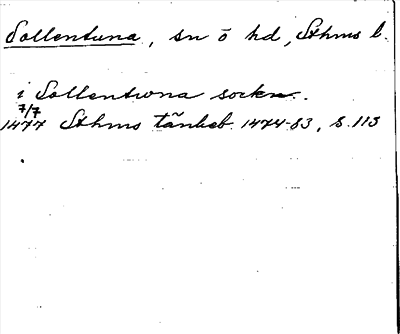 Sollentuna, sn o hd, Sthms l.
i Sollentwna sockn.
7/7
1477 Sthms tänkeb. 1474-83, s. 113